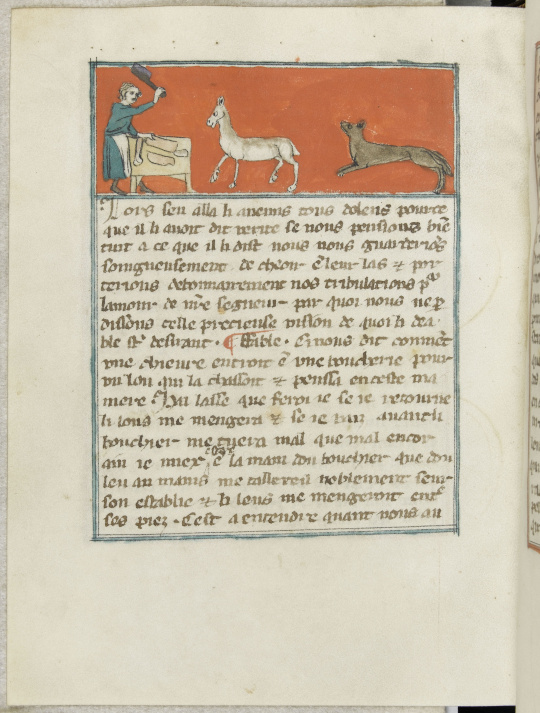 Lors sen alla li anemis tous dolens pource
que il li auoit dit uerite se nous pensions biē
tuit a ce que il li dist nous nous guarderiōs
songneusement de cheoir ē leur las ⁊ por
terions debonnairement nos tribulations pͦ
lamour de nrē segneur par quoi nous ne p
dissons celle precieuse uision de quoi li dea
ble st desirant · ¶ Fable · Ci nous dit commēt
vne chieure entroit ē vne boucherie pour
vn lou qui la chassoit ⁊ penssa en ceste ma
niere Ha lasse que ferai ie se ie retourne
li lous me mengera ⁊ se ie uai auant li
bouchier me tuera mal que mal encor
ain ie miex ē la main dou bouchier que dou
leu au mains me taillera noblement seur
son establie ⁊ li leus me mengeroit entᵉ
ses piez · Cest a entendre quant nous au